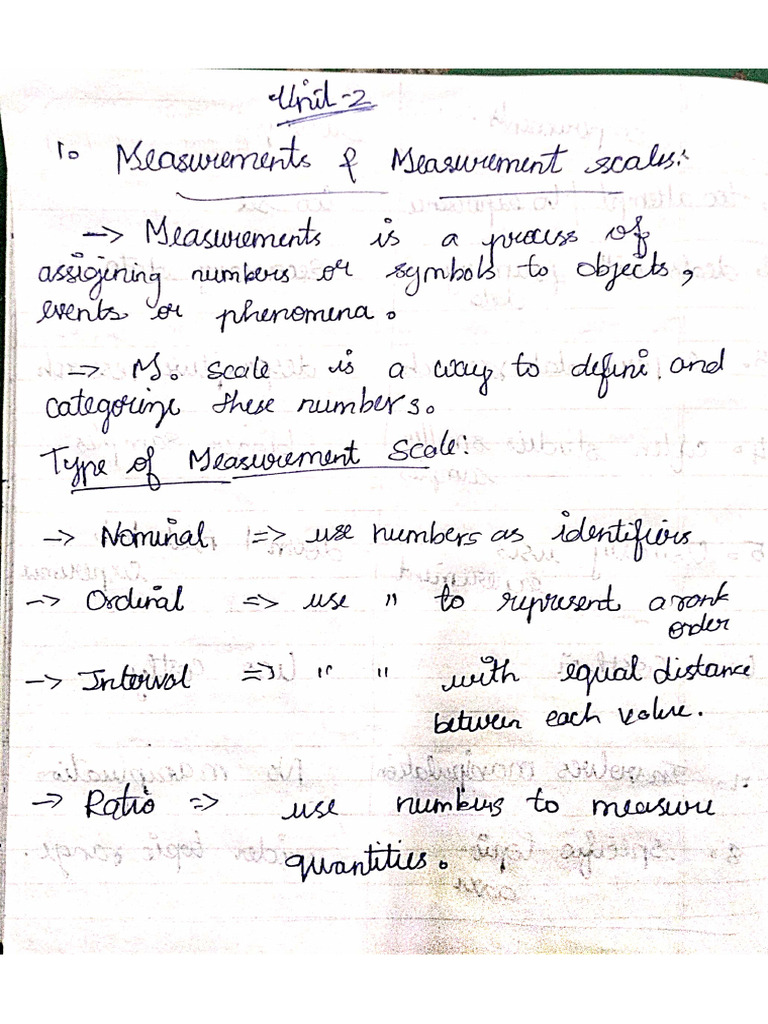 Unit-2
1. Measurements & Measurement scales:
--> Measurements is a process of
assigining numbers or symbols to objects,
events or phenomena.
--> M. scale is a way to define and
categorize these numbers.
Type of Measurement Scale:
--> Nominal => use numbers as identifiers
--> Ordinal => use " to represent a rank
order
--> Interval => " " with equal distance
between each value.
--> Ratio => use numbers to measure
quantities.